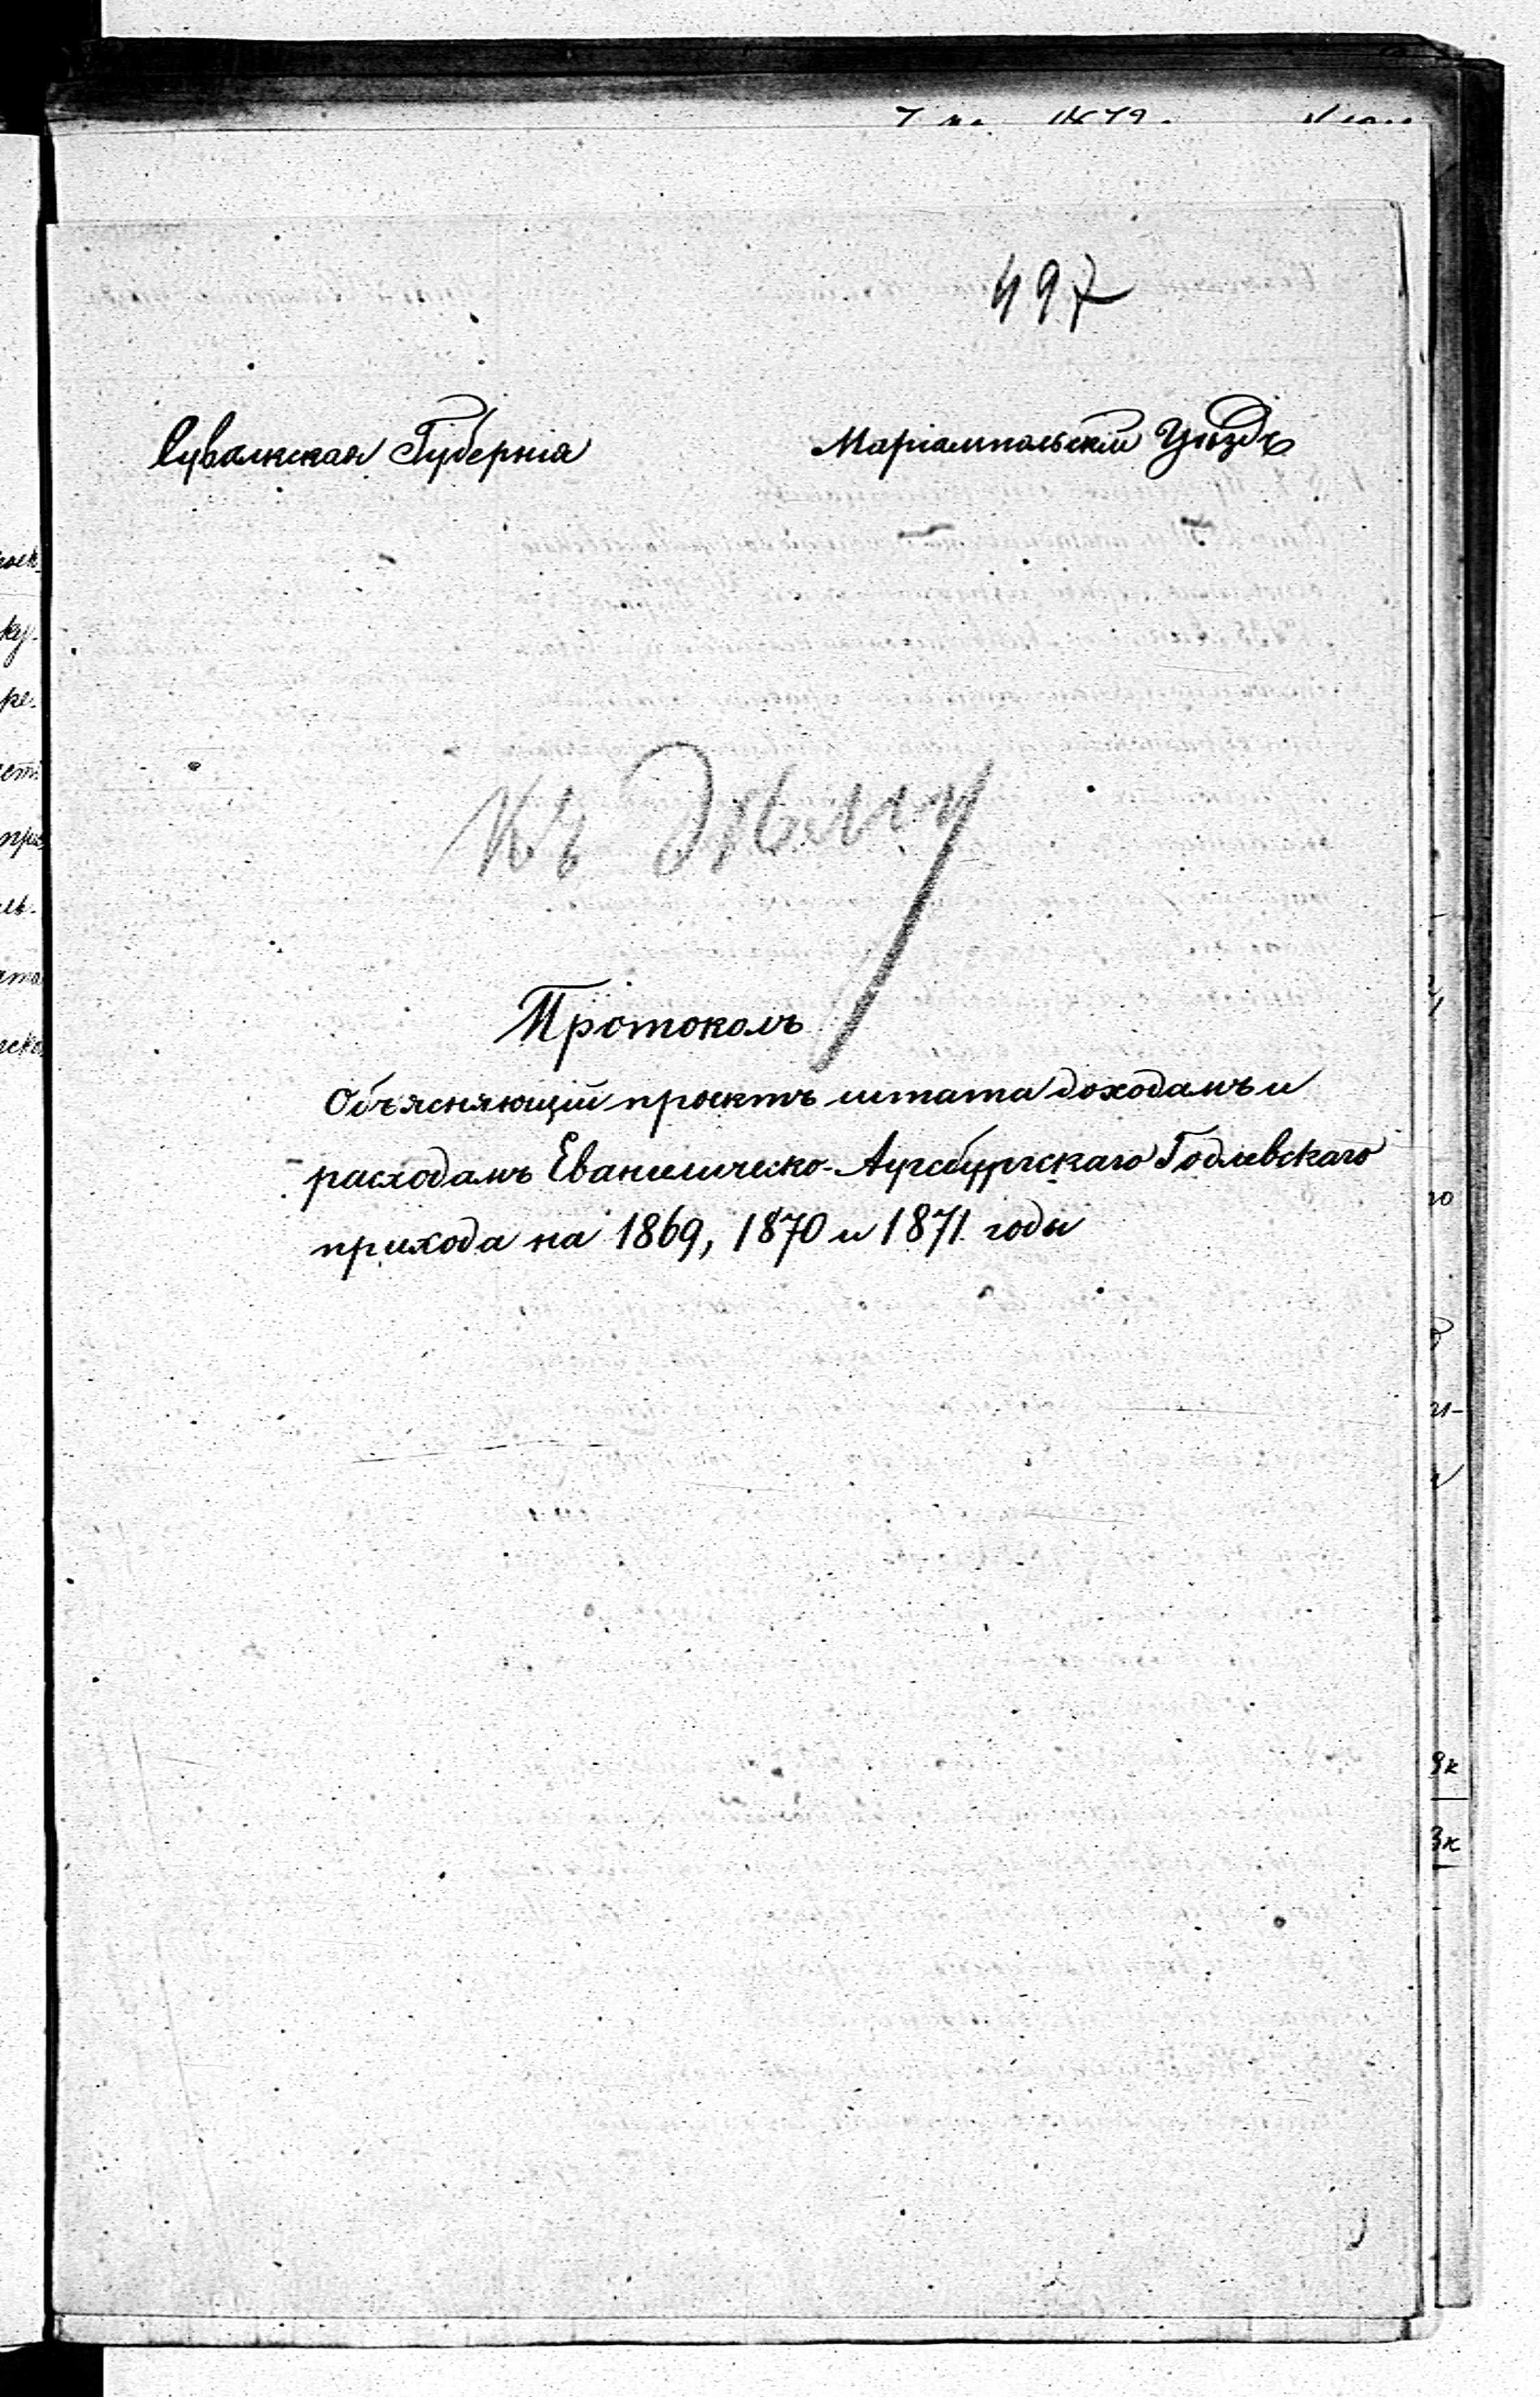 497
Сувалкская Губернія
Маріампольскій Уѣздъ
Къ дѣлу
Протоколъ
Объясняющій проектъ штата доходамъ и
расходамъ Евангелическо-Аугсбургскаго Годлевскаго
прихода на 1869, 1870 и 1871 годы